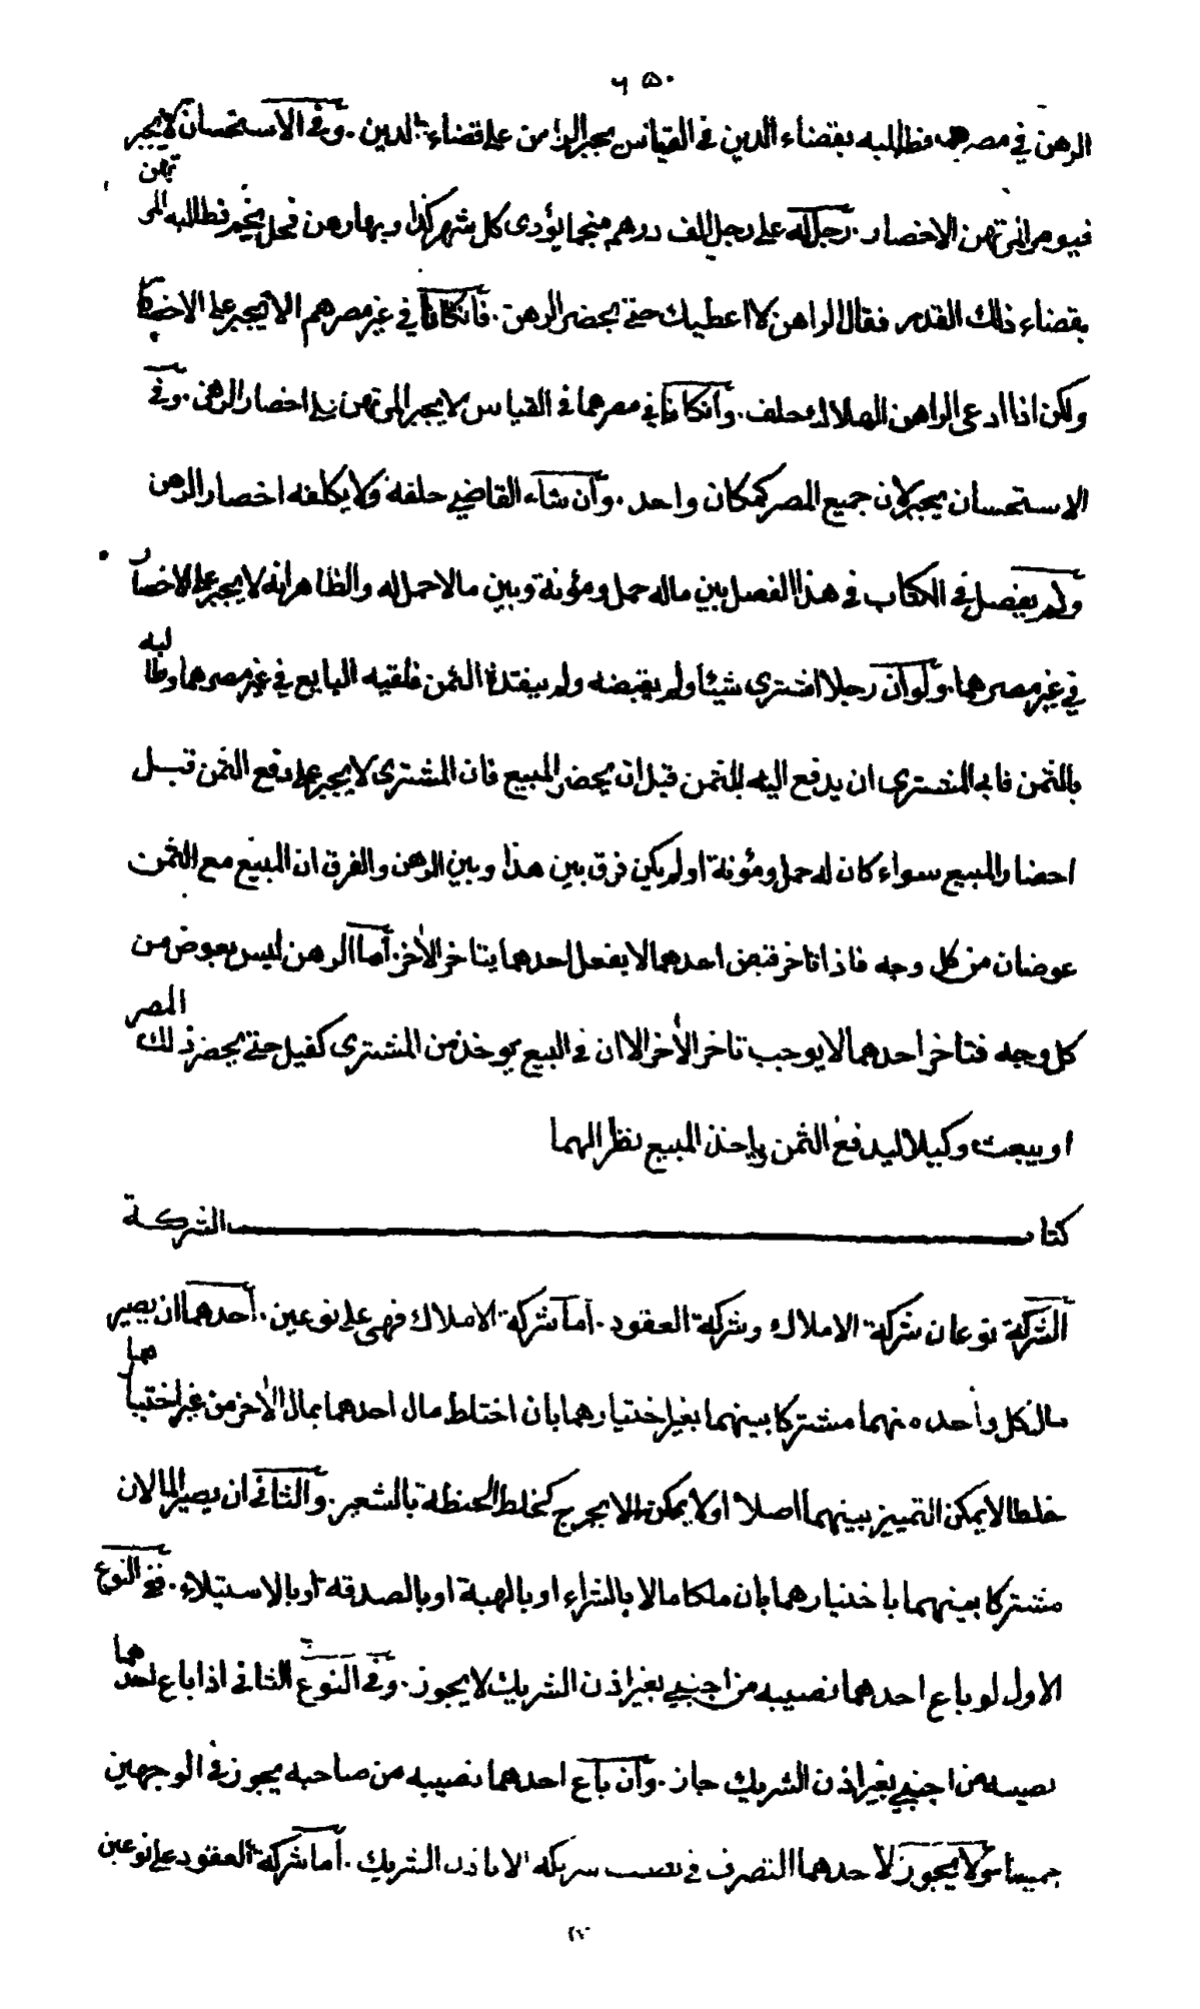 ٦٥٠
الرهن في مصرهما فطالبه بقضاء الدين في القياس يجبر الراهن على قضاء الدين . وفي الاستحسان لا يجبر
فيؤمر المرتهن الاحضار . رجل له على رجل الف درهم منجما يؤدى كل شهر كذا وبها رهن فحل نجم فطالبه المرتهن
بقضاء ذلك القدر فقال الراهن لا اعطيك حتى يحضر الرهن . فان كانا في غير مصرهم الا يجبر على الاحضار
ولكن اذا ادعى الراهن الهلاك حلف . وان كانا في مصرهما في القياس لا يجبر المرتهن على احضار الرهن . وفي
الاستحسان يجبر لان جميع المصر كمكان واحد . وان شاء القاضي حلفه ولا يكلفه احضار الرهن
ولم يفصل في الكتاب في هذا الفصل بين ماله حمل ومؤنة وبين مالا حمل له والظاهر انه لا يجبر على الاحضار
في غير مصرهما . ولو ان رجلا اشترى شيئا ولم يقبضه ولم ينقد الثمن فلقيه البايع في غير مصرهما وطالبه
بالثمن فابى المشترى ان يدفع اليه الثمن قبل ان يحضر المبيع فان المشترى لا يجبر على دفع الثمن قبل
احضار المبيع سواء كان له حمل ومؤنة او لم يكن فرق بين هذا وبين الرهن والفرق ان المبيع مع الثمن
عوضان من كل وجه فاذا تاخر قبض احدهما لا بفعل احدهما يتاخر الآخر . اما الرهن ليس بعوض من
كل وجه فتاخر احدهما لا يوجب تاخر الآخر الا ان في البيع يوخذ من المشترى كفيل حتى يحضر ذلك المصر
او يبعث وكيلا ليدفع الثمن وياخذ المبيع نظرا لهما
كتاب الشركة
الشركة نوعان شركة الاملاك وشركة العقود . اما شركة الاملاك فهي على نوعين . احدهما ان يصير
مال كل واحد منهما مشتركا بينهما بغير اختيارهما بان اختلط مال احدهما بمال الآخر من غير اختيارهما
خلطا لا يمكن التمييز بينهما اصلا او لا يمكن الا بحرج كخلط الحنطة بالشعير . والثاني ان يصير المالان
مشتركا بينهما باختيارهما بان ملكا مالا بالشراء او بالهبة او بالصدقة او بالاستيلاء . ففي النوع
الاول لو باع احدهما نصيبه من اجنبي بغير اذن الشريك لا يجوز . وفي النوع الثاني اذا باع احدهما
نصيبه من اجنبي بغير اذن الشريك جاز . وان باع احدهما نصيبه من صاحبه يجوز في الوجهين
جميعا ولا يجوز لاحدهما التصرف في نصيب شريكه الا باذن الشريك . اما شركة العقود على نوعين